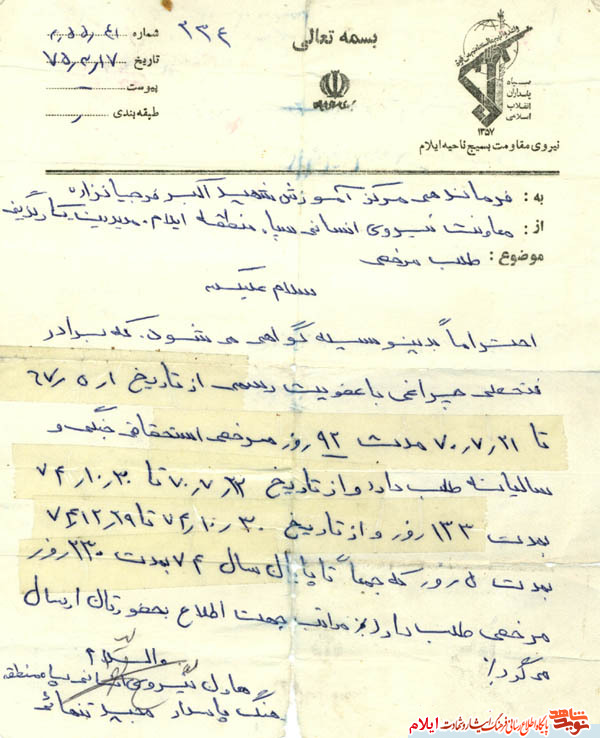 بسمه تعالی
۳۳۴
شماره
تاریخ ۷۵٫۳٫۱۷
پیوست -
طبقه‌بندی
سپاه
پاسداران
انقلاب
اسلامی
۱۳۵۷
نیروی مقاومت بسیج ناحیه ایلام
به : فرماندهی مرکز آموزش شهید اکبر
از : معاونت نیروی انسانی سپاه منطقه ایلام - مدیریت
موضوع : طلب مرخصی
سلام علیکم
احتراماً بدینوسیله گواهی می شود که برادر
فتحعلی چراغی با عضویت رسمی از تاریخ ۶۷٫۵٫۱
تا ۷۰٫۷٫۲۱ مدت ۹۲ روز مرخصی استحقاقی جنگی و
سالیانه طلب دارد و از تاریخ ۷۰٫۷٫۲۲ تا ۷۴٫۱۰٫۳۰
بمدت ۱۳۳ روز و از تاریخ ۷۴٫۱۰٫۳۰ تا ۷۴٫۱۲٫۲۹
بمدت ۵ روز که جمعاً تا پایان سال ۷۴ بمدت ۲۳۰ روز
مرخصی طلب دارد مراتب جهت اطلاع بحضورتان ارسال
میگردد
والسلام
نیروی انسانی سپاه منطقه
پاسدار مجید
شاهد
نوید
پایگاه اطلاع رسانی فرهنگ ایثار و شهادت ایلام